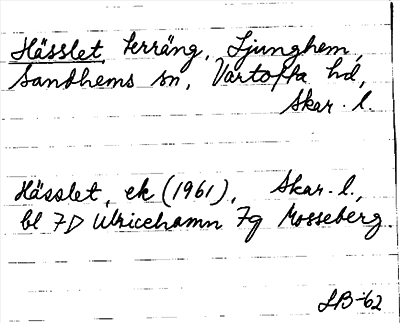 Hässlet, terräng, Ljunghem,
Sandhems sn, Vartofta hd,
Skar. l.
Hässlet, ek (1961), Skar. l.,
bl 7D Ulricehamn 7g Mosseberg.
LB-62